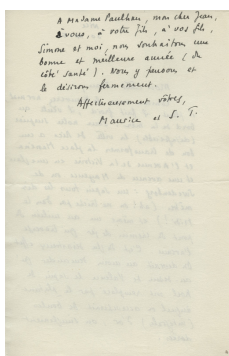 A Madame Paulhan, mon cher Jean,
à vous, à votre fils, à vos fils,
Simone et moi, nous souhaitons une
bonne et meilleure année (du
côté santé). Nous y pensons et
le désirons fermement.
Affectueusement vôtres,
Maurice et S. T.